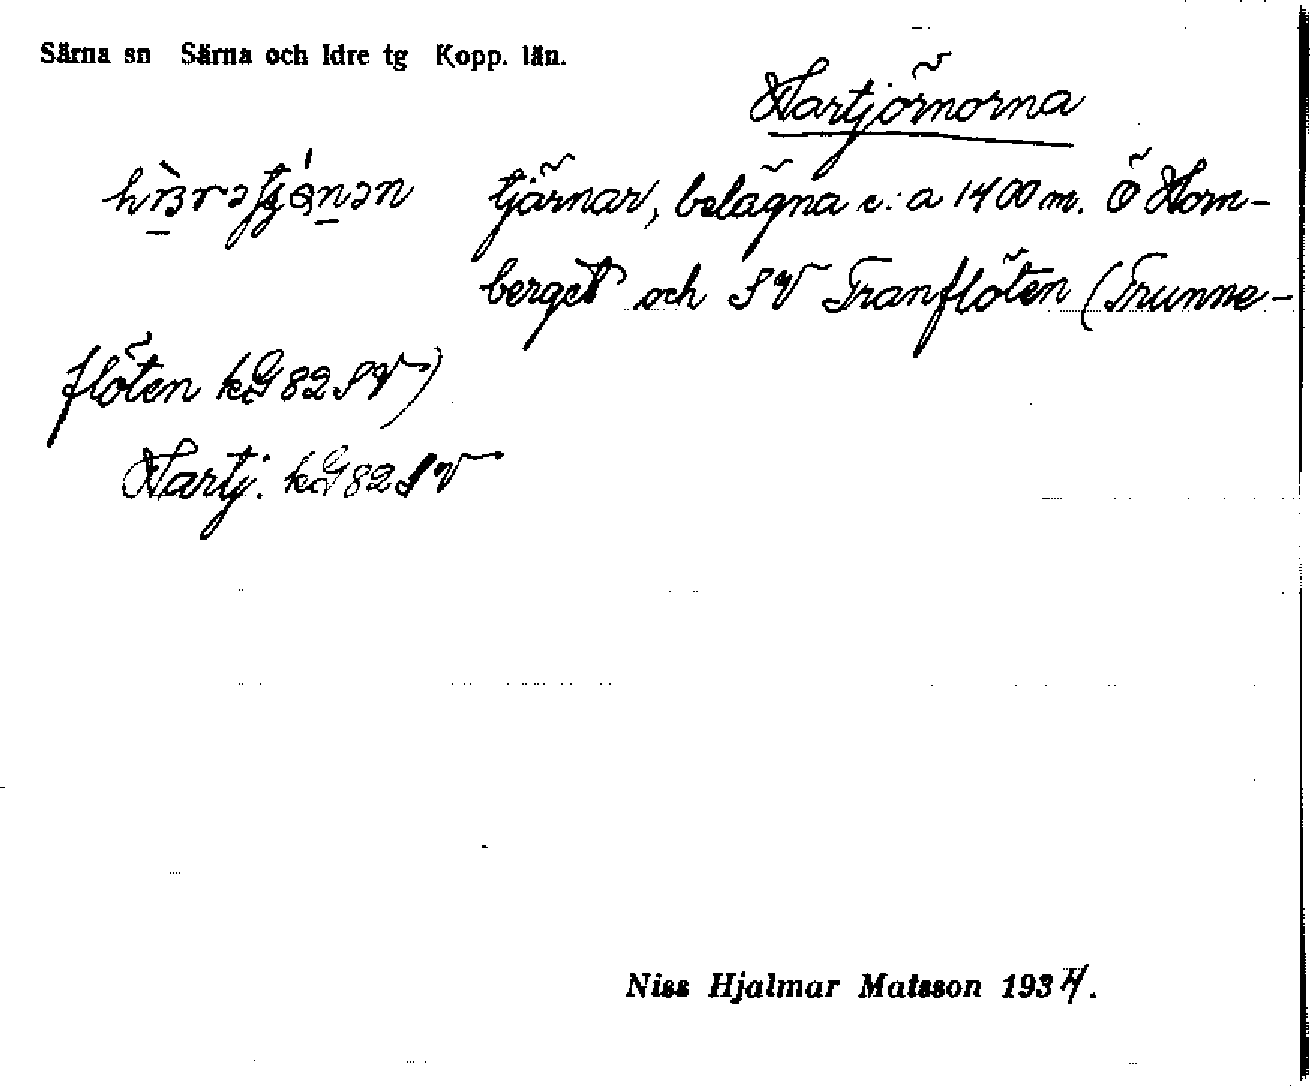 Särna sn Särna och Idre tg Kopp. län.
Hartjörnorna
tjärnar, belägna c:a 1400 m. Ö Horn-
berget och SV Tranflöten (Trunne-
flöten kG 82 SV)
Hartj. kG 82 SV
Niss Hjalmar Matsson 1934.